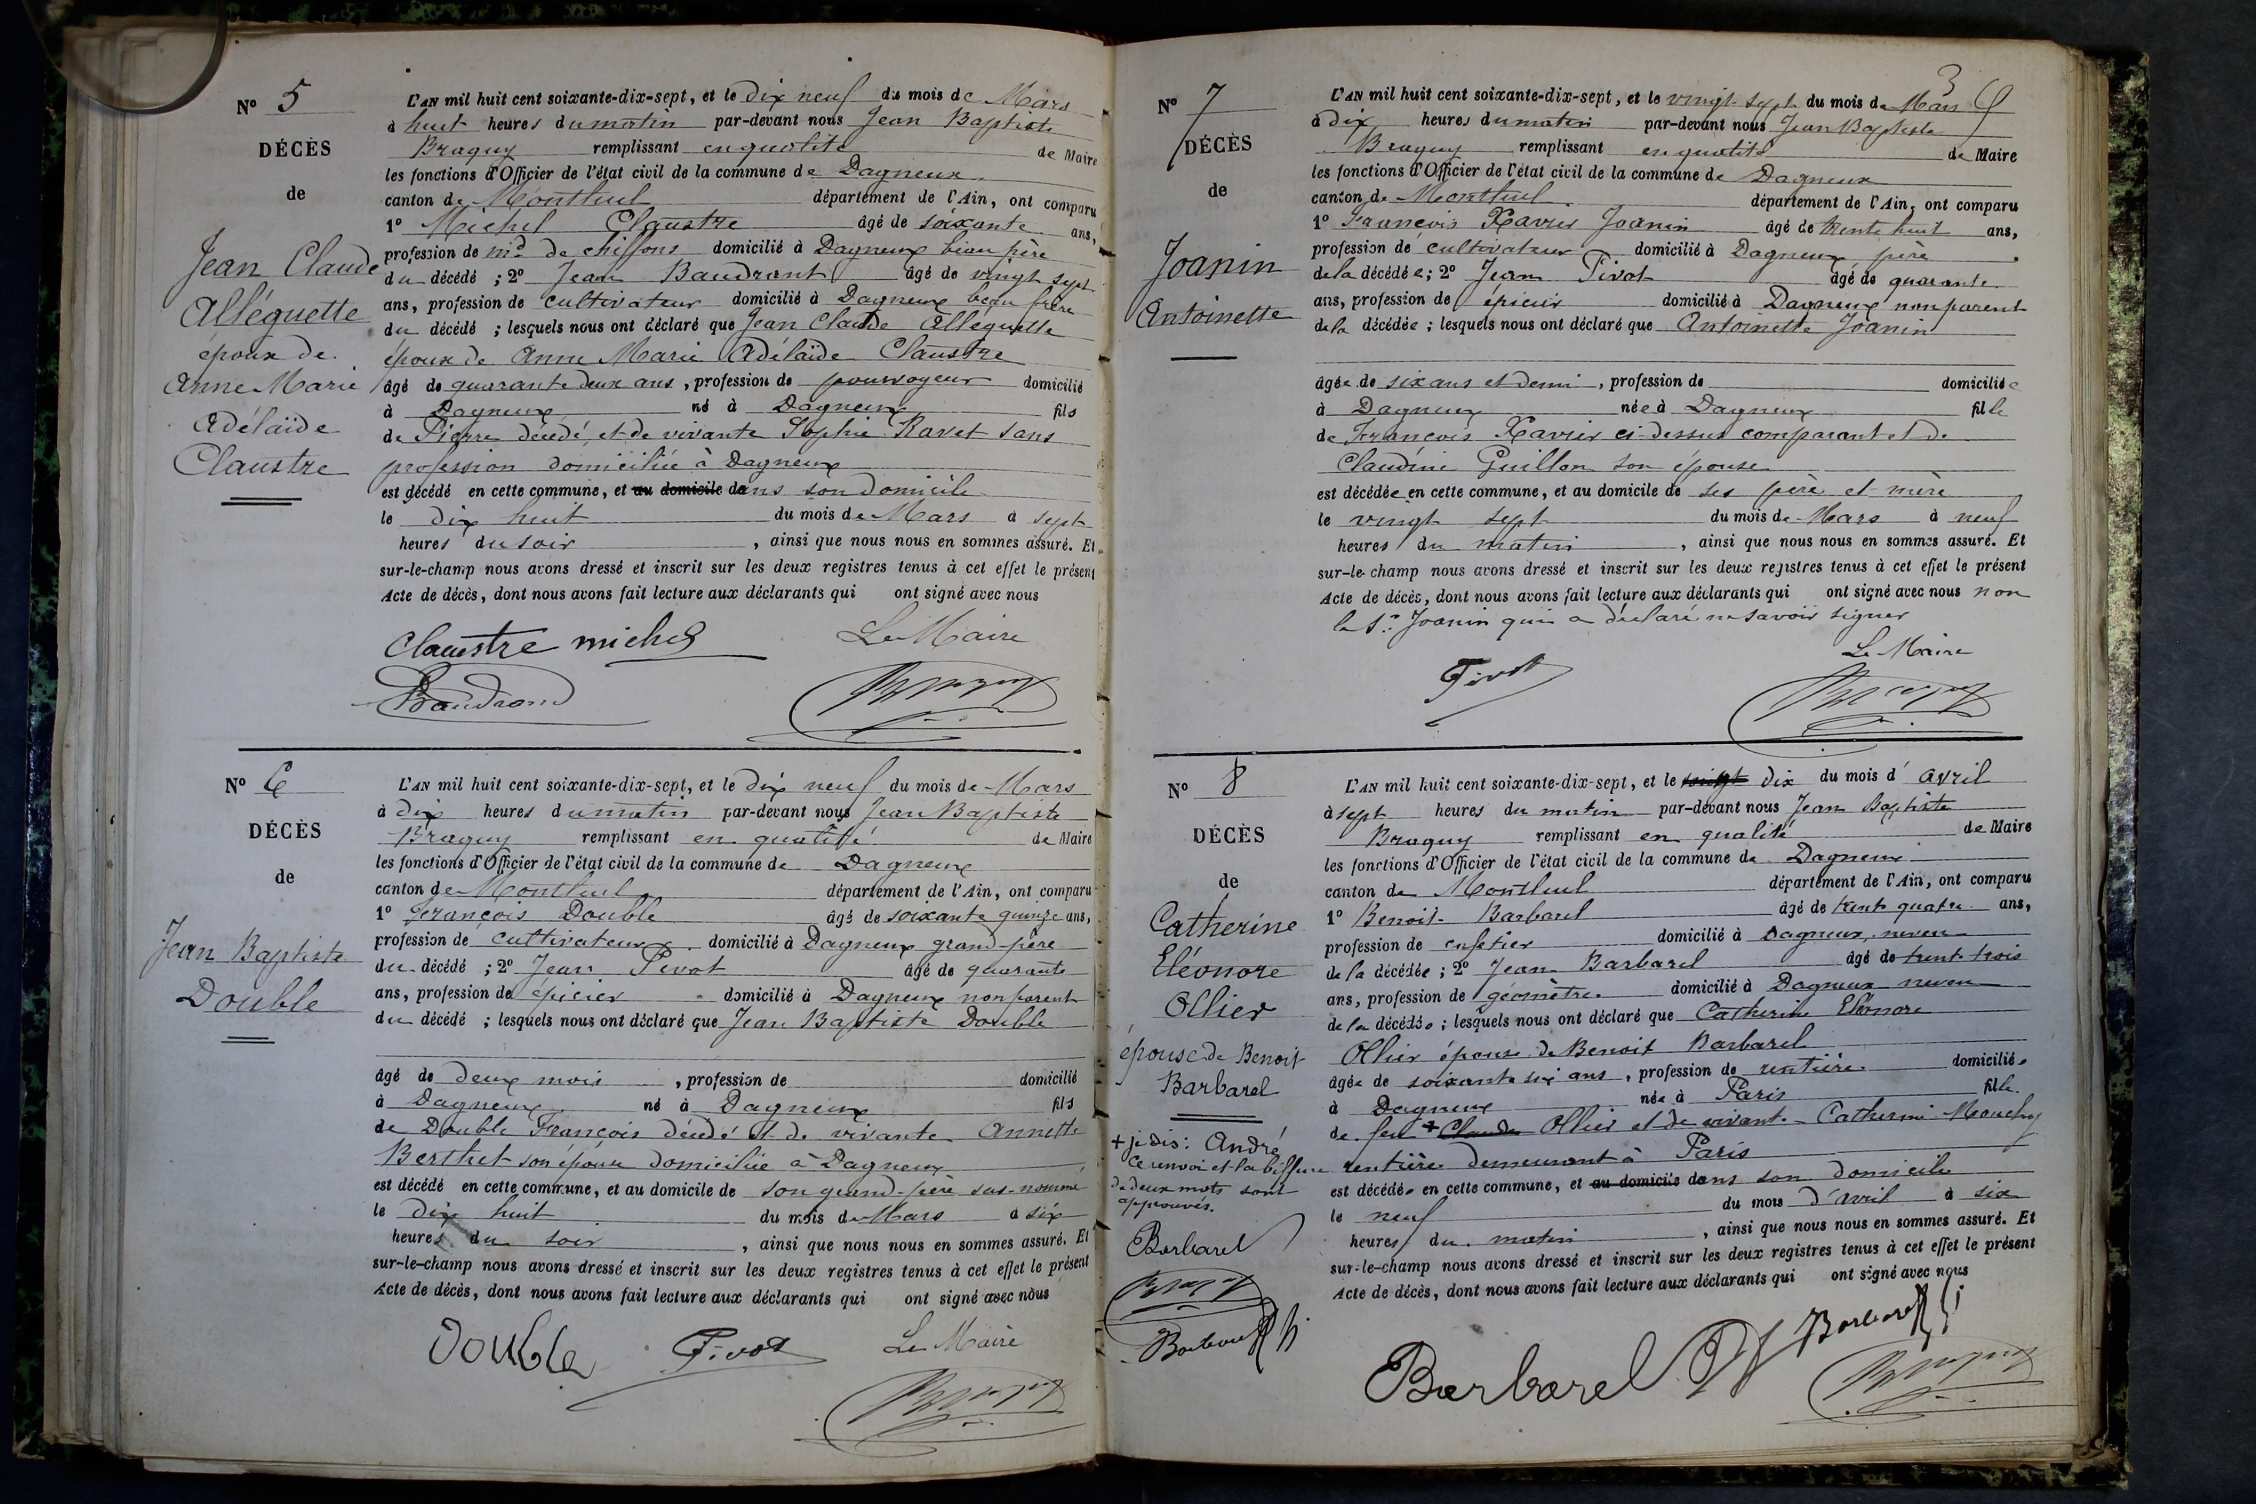 N° 5
DÉCÈS
de
Jean Claude
Alléguette
époux de
Anne Marie
Adélaïde
Claustre
L'AN mil huit cent soixante-dix-sept, et le dix neuf du mois de Mars
à huit heures du matin par-devant nous Jean Baptiste
Braguy remplissant en qualité de Maire
les fonctions d'Officier de l'état civil de la commune de Dagneux
canton de Montluel département de l'Ain, ont comparu
1° Michel Claustre âgé de soixante ans,
profession de md de chiffons domicilié à Dagneux beau père
du décédé ; 2° Jean Baudrant âgé de vingt sept
ans, profession de cultivateur domicilié à Dagneux beau frère
du décédé ; lesquels nous ont déclaré que Jean Claude Alléguette
époux de Anne Marie Adélaïde Claustre
âgé de quarante deux ans, profession de pourvoyeur domicilié
à Dagneux né à Dagneux fils
de Pierre décédé, et de vivante Sophie Ravet sans
profession domiciliée à Dagneux
est décédé en cette commune, et au domicile dans son domicile
le dix huit du mois de Mars à sept
heures du soir , ainsi que nous nous en sommes assuré. Et
sur-le-champ nous avons dressé et inscrit sur les deux registres tenus à cet effet le présent
Acte de décès, dont nous avons fait lecture aux déclarants qui ont signé avec nous
Claustre michel Le Maire
Baudrand Braguy
N° 6
DÉCÈS
de
Jean Baptiste
Double
L'AN mil huit cent soixante-dix-sept, et le dix neuf du mois de Mars
à dix heures du matin par-devant nous Jean Baptiste
Braguy remplissant en qualité de Maire
les fonctions d'Officier de l'état civil de la commune de Dagneux
canton de Montluel département de l'Ain, ont comparu
1° François Double âgé de soixante quinze ans,
profession de cultivateur domicilié à Dagneux grand-père
du décédé ; 2° Jean Pivot âgé de quarante
ans, profession de épicier domicilié à Dagneux non parent
du décédé ; lesquels nous ont déclaré que Jean Baptiste Double
âgé de deux mois , profession de domicilié
à Dagneux né à Dagneux fils
de Double François décédé et de vivante Annette
Berthet son épouse domiciliée à Dagneux
est décédé en cette commune, et au domicile de son grand-père sus-nommé
le dix huit du mois de Mars à six
heures du soir , ainsi que nous nous en sommes assuré. Et
sur-le-champ nous avons dressé et inscrit sur les deux registres tenus à cet effet le présent
Acte de décès, dont nous avons fait lecture aux déclarants qui ont signé avec nous
Double Pivot Le Maire
Braguy
3
N° 7
DÉCÈS
de
Joanin
Antoinette
L'AN mil huit cent soixante-dix-sept, et le vingt sept du mois de Mars
à dix heures du matin par-devant nous Jean Baptiste
Braguy remplissant en qualité de Maire
les fonctions d'Officier de l'état civil de la commune de Dagneux
canton de Montluel département de l'Ain, ont comparu
1° François Xavier Joanin âgé de trente huit ans,
profession de cultivateur domicilié à Dagneux père
de la décédée ; 2° Jean Pivot âgé de quarante
ans, profession de épicier domicilié à Dagneux non parent
de la décédée ; lesquels nous ont déclaré que Antoinette Joanin
âgée de six ans et demi , profession de domiciliée
à Dagneux née à Dagneux fille
de François Xavier ci-dessus comparant et de
Claudine Guillon son épouse
est décédée en cette commune, et au domicile de ses père et mère
le vingt sept du mois de Mars à neuf
heures du matin , ainsi que nous nous en sommes assuré. Et
sur-le-champ nous avons dressé et inscrit sur les deux registres tenus à cet effet le présent
Acte de décès, dont nous avons fait lecture aux déclarants qui ont signé avec nous non
le Sr Joanin qui a déclaré ne savoir signer
Le Maire
Pivot Braguy
N° 8
DÉCÈS
de
Catherine
Eléonore
Ollier
épouse de Benoit
Barbarel
+ je dis: André
ce renvoi et la biffure
de deux mots sont
approuvés.
Barbarel
Braguy
Barbarel
L'AN mil huit cent soixante-dix-sept, et le vingt dix du mois d'avril
à sept heures du matin par-devant nous Jean Baptiste
Braguy remplissant en qualité de Maire
les fonctions d'Officier de l'état civil de la commune de Dagneux
canton de Montluel département de l'Ain, ont comparu
1° Benoit Barbarel âgé de trente quatre ans,
profession de cafetier domicilié à Dagneux, neveu
de la décédée ; 2° Jean Barbarel âgé de trente trois
ans, profession de géomètre domicilié à Dagneux neveu
de la décédée ; lesquels nous ont déclaré que Catherine Eléonore
Ollier épouse de Benoit Barbarel
âgée de soixante six ans, profession de rentière domiciliée
à Dagneux née à Paris fille
de feu + Claude Ollier et de vivante Catherine Mouchy
rentière demeurant à Paris
est décédée en cette commune, et au domicile dans son domicile
le neuf du mois d'avril à six
heures du matin , ainsi que nous nous en sommes assuré. Et
sur-le-champ nous avons dressé et inscrit sur les deux registres tenus à cet effet le présent
Acte de décès, dont nous avons fait lecture aux déclarants qui ont signé avec nous
Barbarel Barbarel
Braguy